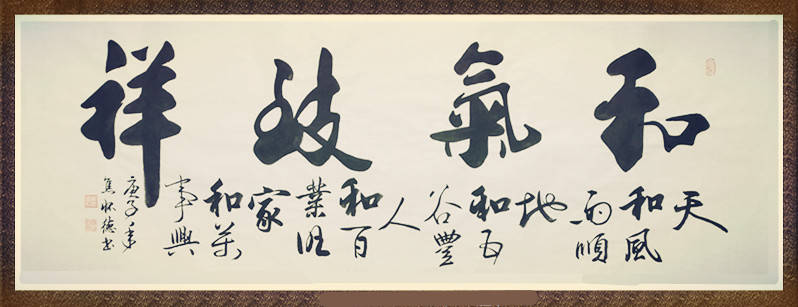 和氣致祥
天
和風
雨順
地
和五
谷豐
人
和百
業旺
家
和萬
事興
庚子年
焦怀德书